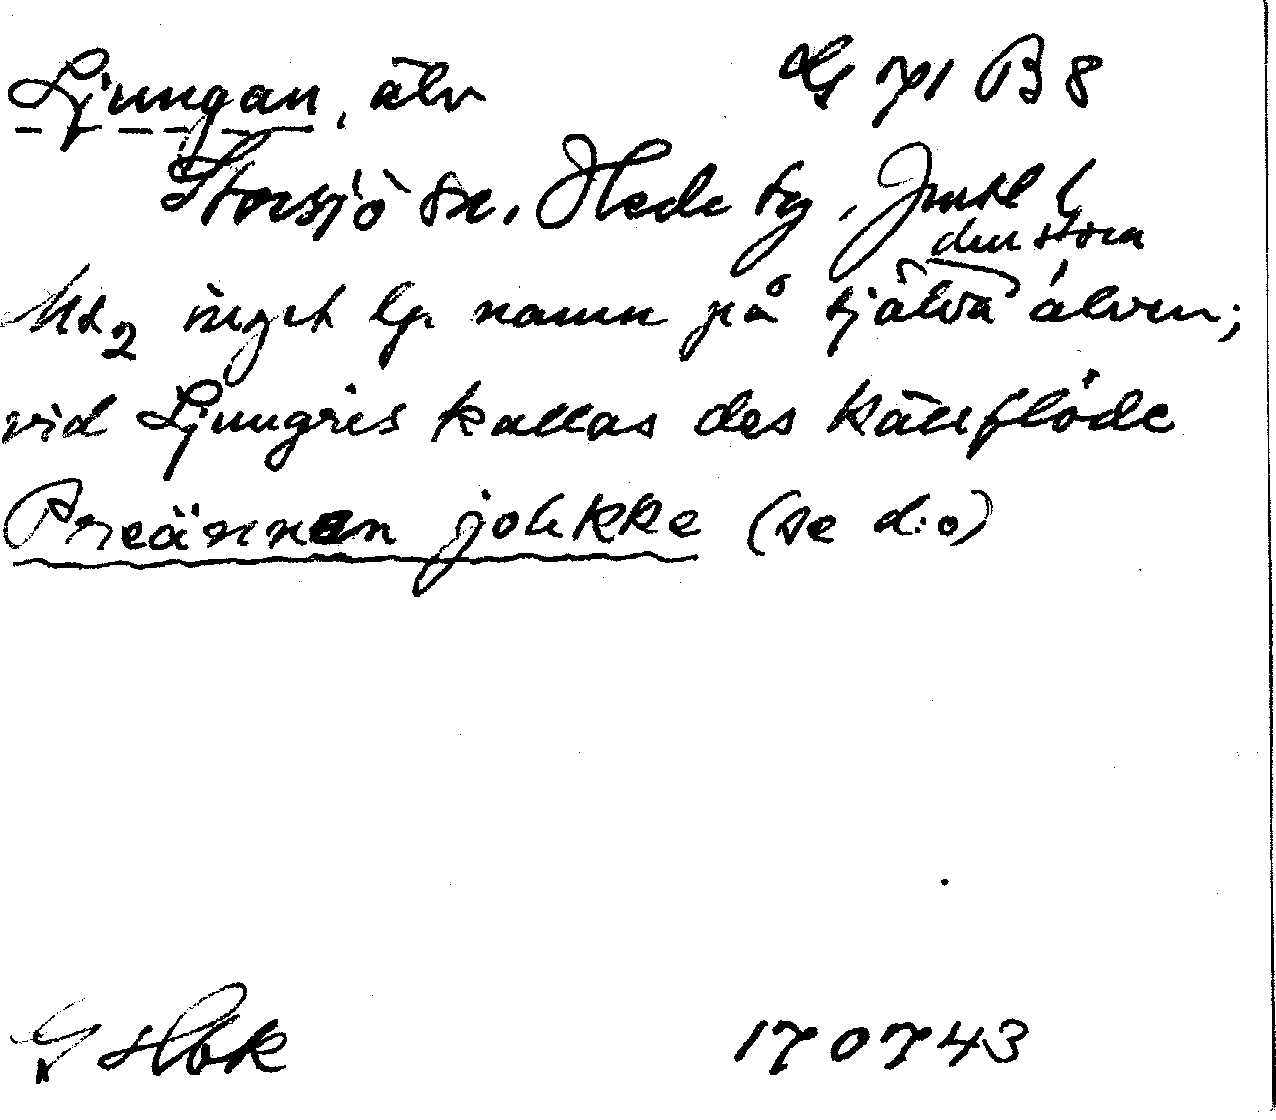 Ljungan, älv G 71 B 8
Storsjö sn, Hede tg, Jmtl l
den stora
Mt2 inget lp namn på själva älven;
vid Ljungris kallas des källflöde
Preännen johkke (se d:o)
G Hbk 170743